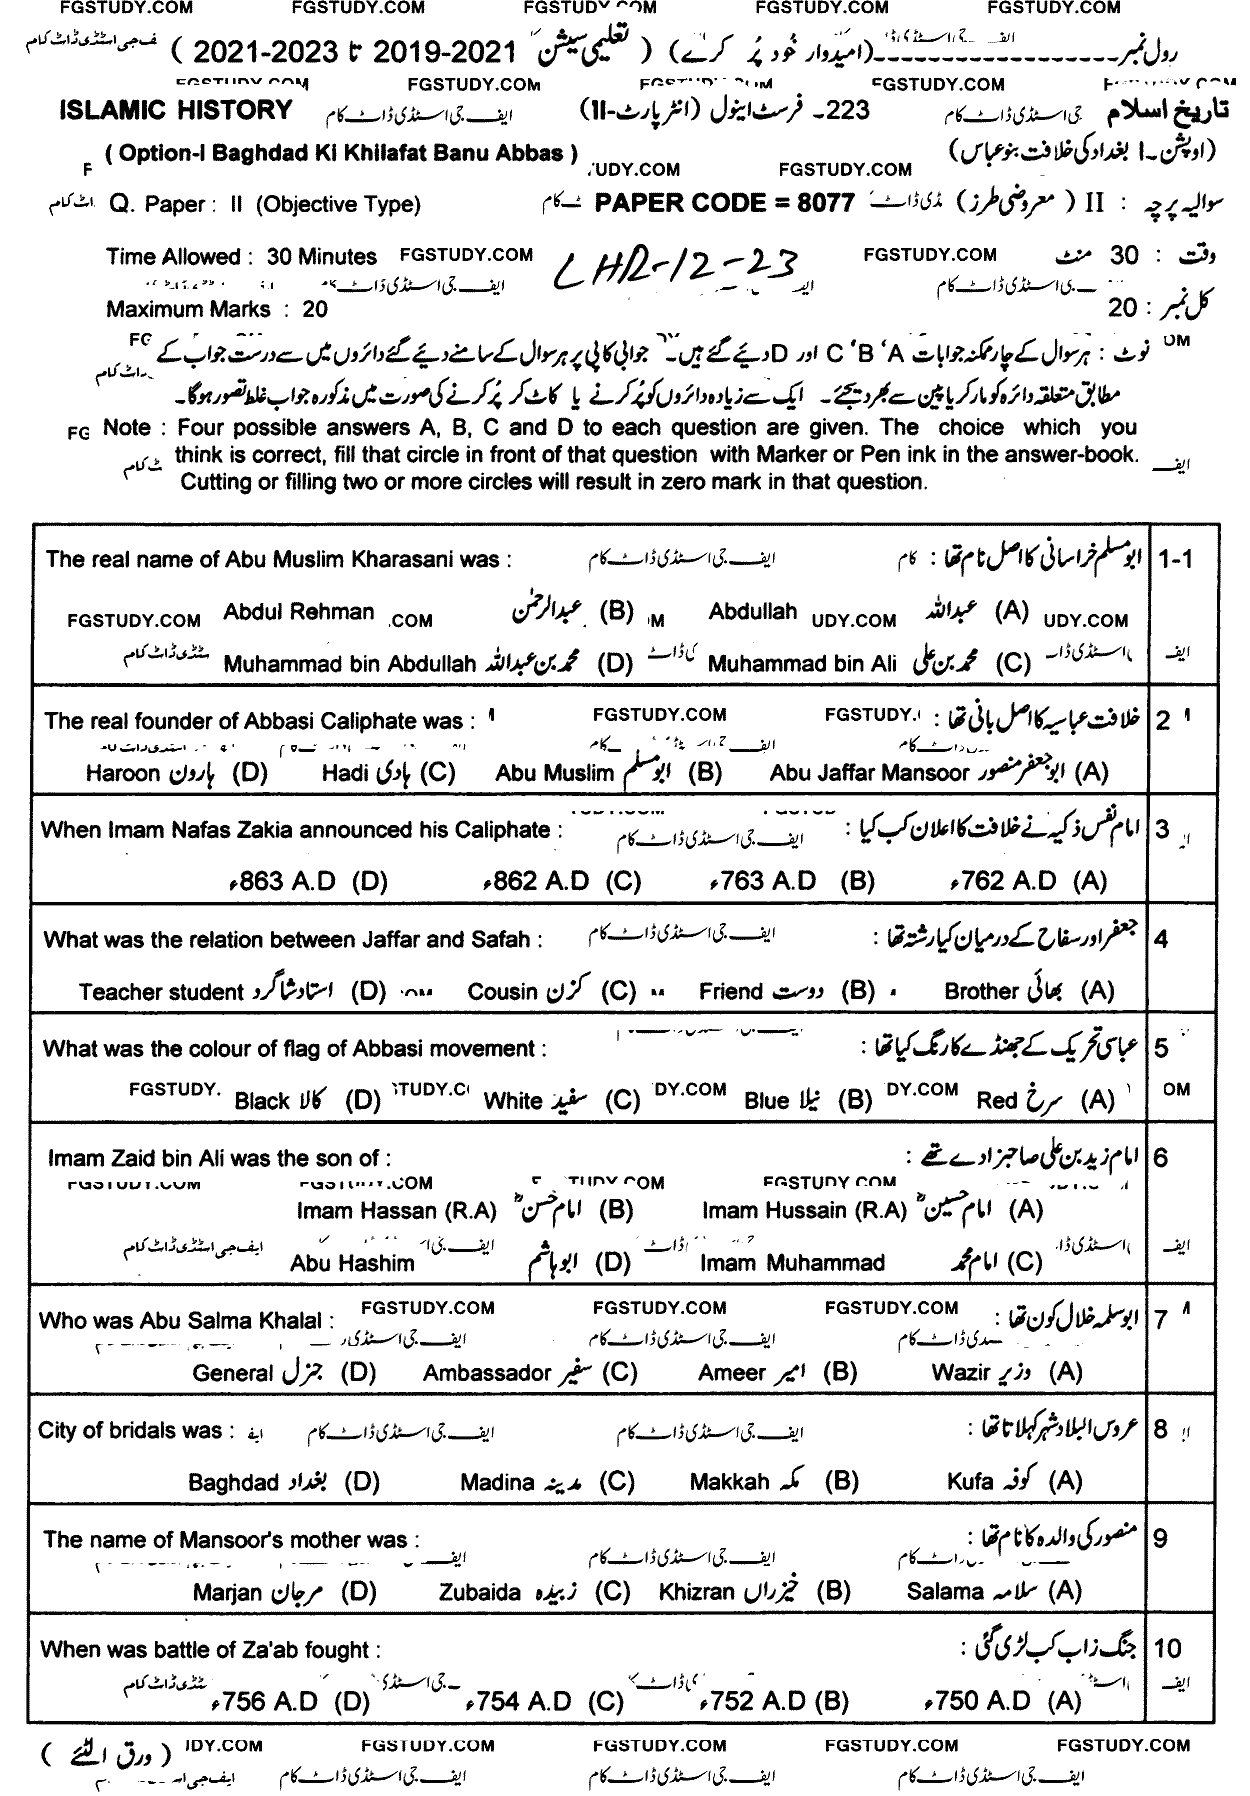 FGSTUDY.COM FGSTUDY.COM FGSTUDY.COM FGSTUDY.COM FGSTUDY.COM
رول نمبر------------------(امیدوار خود پُر کرے) ( تعلیمی سیشن 2021-2019 تا 2023-2021 )
FGSTUDY.COM FGSTUDY.COM FGSTUDY.COM FGSTUDY.COM
ISLAMIC HISTORY 223۔ فرسٹ اینول (انٹر پارٹ-II) تاریخ اسلام
( Option-I Baghdad Ki Khilafat Banu Abbas ) (اوپشن-I بغداد کی خلافت بنو عباس)
UDY.COM FGSTUDY.COM
Q. Paper : II (Objective Type) PAPER CODE = 8077 سوالیہ پرچہ : II ( معروضی طرز)
Time Allowed : 30 Minutes FGSTUDY.COM LHR-12-23 FGSTUDY.COM وقت : 30 منٹ
Maximum Marks : 20 کل نمبر : 20
نوٹ : ہر سوال کے چار ممکنہ جوابات A، B، C اور D دیئے گئے ہیں۔ جوابی کاپی پر ہر سوال کے سامنے دیئے گئے دائروں میں سے درست جواب کے
مطابق متعلقہ دائرہ کو مارکر یا پین سے بھر دیجئے۔ ایک سے زیادہ دائروں کو پُر کرنے یا کاٹ کر پُر کرنے کی صورت میں مذکورہ جواب غلط تصور ہوگا۔
Note : Four possible answers A, B, C and D to each question are given. The choice which you
think is correct, fill that circle in front of that question with Marker or Pen ink in the answer-book.
Cutting or filling two or more circles will result in zero mark in that question.
The real name of Abu Muslim Kharasani was : ابو مسلم خراسانی کا اصل نام تھا : 1-1
FGSTUDY.COM Abdul Rehman .COM عبدالرحمٰن (B) Abdullah UDY.COM عبداللہ (A) UDY.COM
Muhammad bin Abdullah محمد بن عبداللہ (D) Muhammad bin Ali محمد بن علی (C)
The real founder of Abbasi Caliphate was : FGSTUDY.COM FGSTUDY. خلافت عباسیہ کا اصل بانی تھا : 2
Haroon ہارون (D) Hadi ہادی (C) Abu Muslim ابو مسلم (B) Abu Jaffar Mansoor ابو جعفر منصور (A)
When Imam Nafas Zakia announced his Caliphate : امام نفس ذکیہ نے خلافت کا اعلان کب کیا : 3
863 A.D ء (D) 862 A.D ء (C) 763 A.D ء (B) 762 A.D ء (A)
What was the relation between Jaffar and Safah : جعفر اور سفاح کے درمیان کیا رشتہ تھا : 4
Teacher student استاد شاگرد (D) Cousin کزن (C) Friend دوست (B) Brother بھائی (A)
What was the colour of flag of Abbasi movement : عباسی تحریک کے جھنڈے کا رنگ کیا تھا : 5
FGSTUDY. Black کالا (D) White سفید (C) DY.COM Blue نیلا (B) DY.COM Red سرخ (A)
Imam Zaid bin Ali was the son of : امام زید بن علی صاحبزادے تھے : 6
Imam Hassan (R.A) امام حسنؓ (B) Imam Hussain (R.A) امام حسینؓ (A)
Abu Hashim ابو ہاشم (D) Imam Muhammad امام محمد (C)
Who was Abu Salma Khalal : FGSTUDY.COM FGSTUDY.COM FGSTUDY.COM ابو سلمہ خلال کون تھا : 7
General جنرل (D) Ambassador سفیر (C) Ameer امیر (B) Wazir وزیر (A)
City of bridals was : عروس البلاد شہر کہلاتا تھا : 8
Baghdad بغداد (D) Madina مدینہ (C) Makkah مکہ (B) Kufa کوفہ (A)
The name of Mansoor's mother was : منصور کی والدہ کا نام تھا : 9
Marjan مرجان (D) Zubaida زبیدہ (C) Khizran خیزراں (B) Salama سلامہ (A)
When was battle of Za'ab fought : جنگ زاب کب لڑی گئی : 10
756 A.D ء (D) 754 A.D ء (C) 752 A.D ء (B) 750 A.D ء (A)
( ورق الٹئے ) DY.COM FGSTUDY.COM FGSTUDY.COM FGSTUDY.COM FGSTUDY.COM
ایف جی اسٹڈی ڈاٹ کام ایف جی اسٹڈی ڈاٹ کام ایف جی اسٹڈی ڈاٹ کام